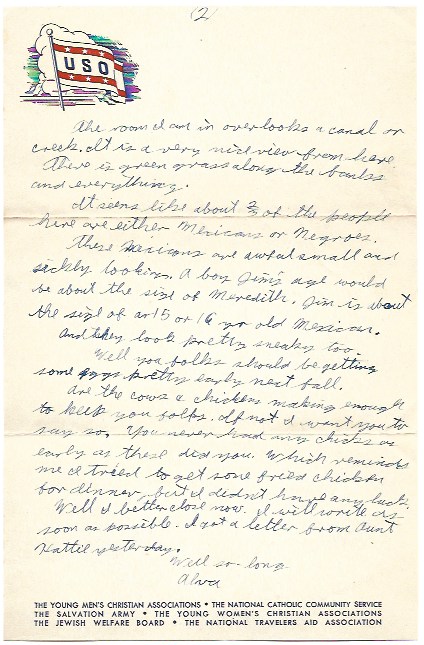 (2)
USO
The room I am in overlooks a canal or
creek. It is a very nice view from here.
There is green grass along the banks
and everything.
It seems like about 2/3 of the people
here are either Mexicans or Negroes.
These Mexicans are awful small and
sickly looking. A boy Jim's age would
be about the size of Meredith. Jim is about
the size of a 15 or 16 yr old Mexican.
And they look pretty sneaky too.
Well you folks should be getting
some eggs pretty early next fall.
Are the cows & chickens making enough
to keep you folks. If not I want you to
say so. You never had any chicks as
early as these did you. Which reminds
me I tried to get some fried chicken
for dinner, but I didn't have any luck.
Well I better close now. I will write as
soon as possible. I got a letter from Aunt
Hattie yesterday.
Well so-long
Alva
THE YOUNG MEN'S CHRISTIAN ASSOCIATIONS • THE NATIONAL CATHOLIC COMMUNITY SERVICE
THE SALVATION ARMY • THE YOUNG WOMEN'S CHRISTIAN ASSOCIATIONS
THE JEWISH WELFARE BOARD • THE NATIONAL TRAVELERS AID ASSOCIATION